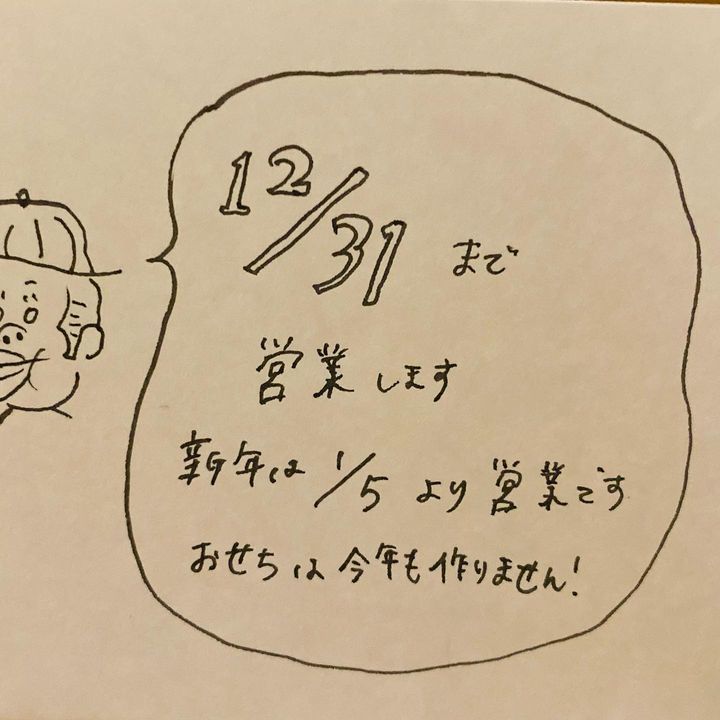 12/31 まで
営業します
新年は 1/5 より営業です
おせちは今年も作りません!